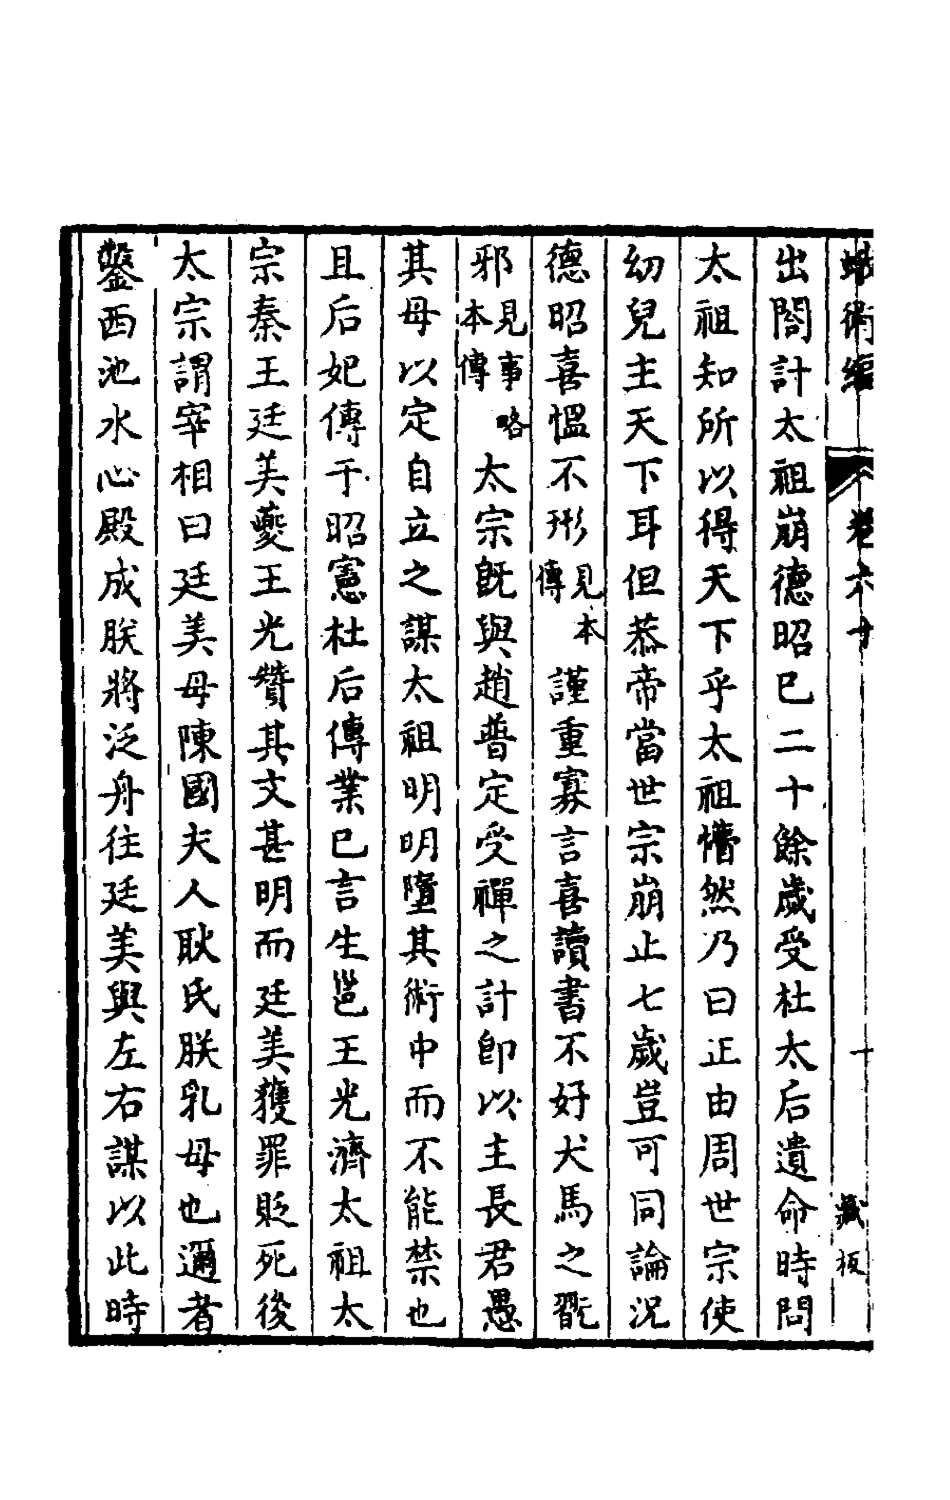 蛾術編 卷六十 十 藏板
出閤計太祖崩德昭已二十餘歲受杜太后遺命時問
太祖知所以得天下乎太祖懵然乃曰正由周世宗使
幼兒主天下耳但恭帝當世宗崩止七歲豈可同論況
德昭喜慍不形見本傳謹重寡言喜讀書不好犬馬之翫
邪見事略本傳太宗旣與趙普定受禪之計卽以主長君愚
其母以定自立之謀太祖明明墮其術中而不能禁也
且后妃傳于昭憲杜后傳業已言生邕王光濟太祖太
宗秦王廷美夔王光贊其文甚明而廷美獲罪貶死後
太宗謂宰相曰廷美母陳國夫人耿氏朕乳母也邇者
鑿西池水心殿成朕將泛舟往廷美與左右謀以此時